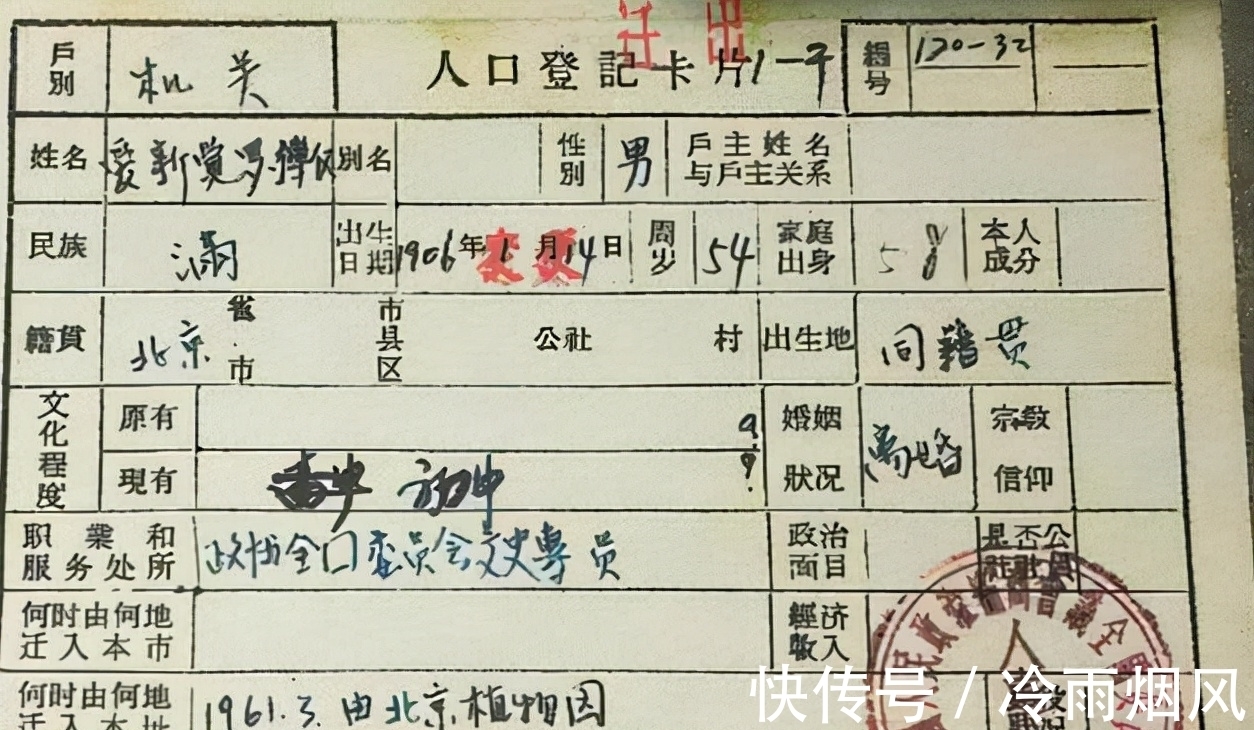 迁出
戶別 机关 人口登記卡片1-平 編号 120-32
姓名 爱新覚罗 別名 性別 男 戶主姓名与戶主关系
民族 满 出生日期 1906年1月14日 变更 周岁 54 家庭出身 58 本人成分
籍貫 北京 省市 市县区 公社 村 出生地 同籍贯
文化程度 原有 婚姻狀况 离婚 宗敎信仰
現有 初中
职業和服务处所 政协全囗委员会文史專员 政治面目 是否公社社員
何时由何地迁入本市 經济收入
人
何时由何地迁入本地 1961.3.由北京植物园
快传号/冷雨烟风